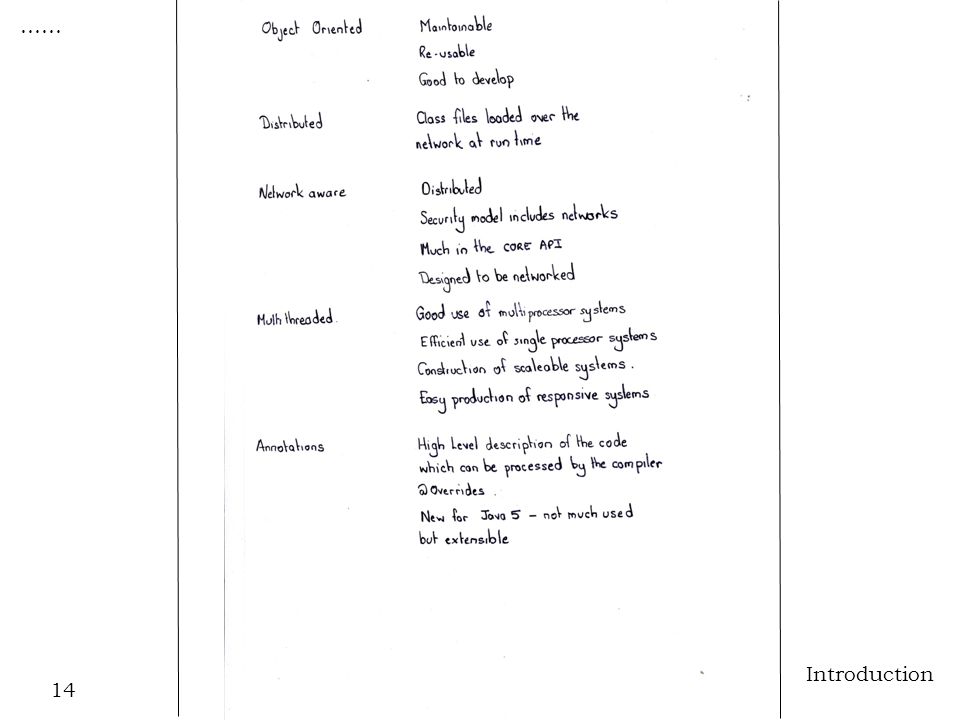 ......
Object Oriented Maintainable
Re-usable
Good to develop
Distributed Class files loaded over the
network at run time
Network aware Distributed
Security model includes networks
Much in the CORE API
Designed to be networked
Multi threaded. Good use of multiprocessor systems
Efficient use of single processor systems
Construction of scaleable systems.
Easy production of responsive systems
Annotations High Level description of the code
which can be processed by the compiler
@Overrides.
New for Java 5 – not much used
but extensible
Introduction
14